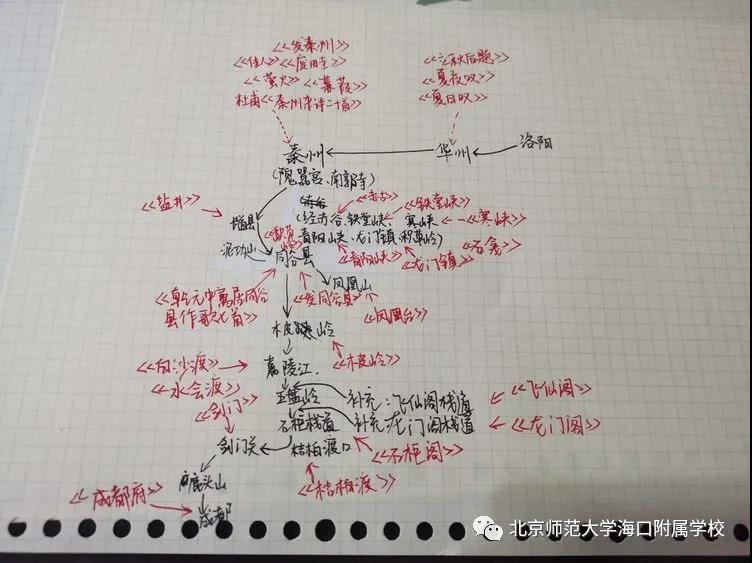 《发秦州》
《佳人》《废畦》
《萤火》《蒹葭》
杜甫《秦州杂诗二十首》
《立秋后题》
《夏夜叹》
《夏日叹》
秦州
华州
洛阳
(隗嚣宫、南郭寺)
《盐井》
盐县
《赤谷》
《铁堂峡》
(经赤谷、铁堂峡、寒峡
《寒峡》
青阳峡、龙门镇、积草岭)
泥功山
同谷县
《青阳峡》
《龙门镇》
《石龛》
凤凰山
《乾元中寓居同谷
县作歌七首》
《发同谷县》
《凤凰台》
木皮岭
《木皮岭》
《白沙渡》
嘉陵江
《水会渡》
《剑门》
五盘岭
补充:飞仙阁栈道
《飞仙阁》
石柜栈道
补充:龙门阁栈道
《龙门阁》
剑门关
桔柏渡口
《石柜阁》
鹿头山
《桔柏渡》
《成都府》
成都
北京师范大学海口附属学校